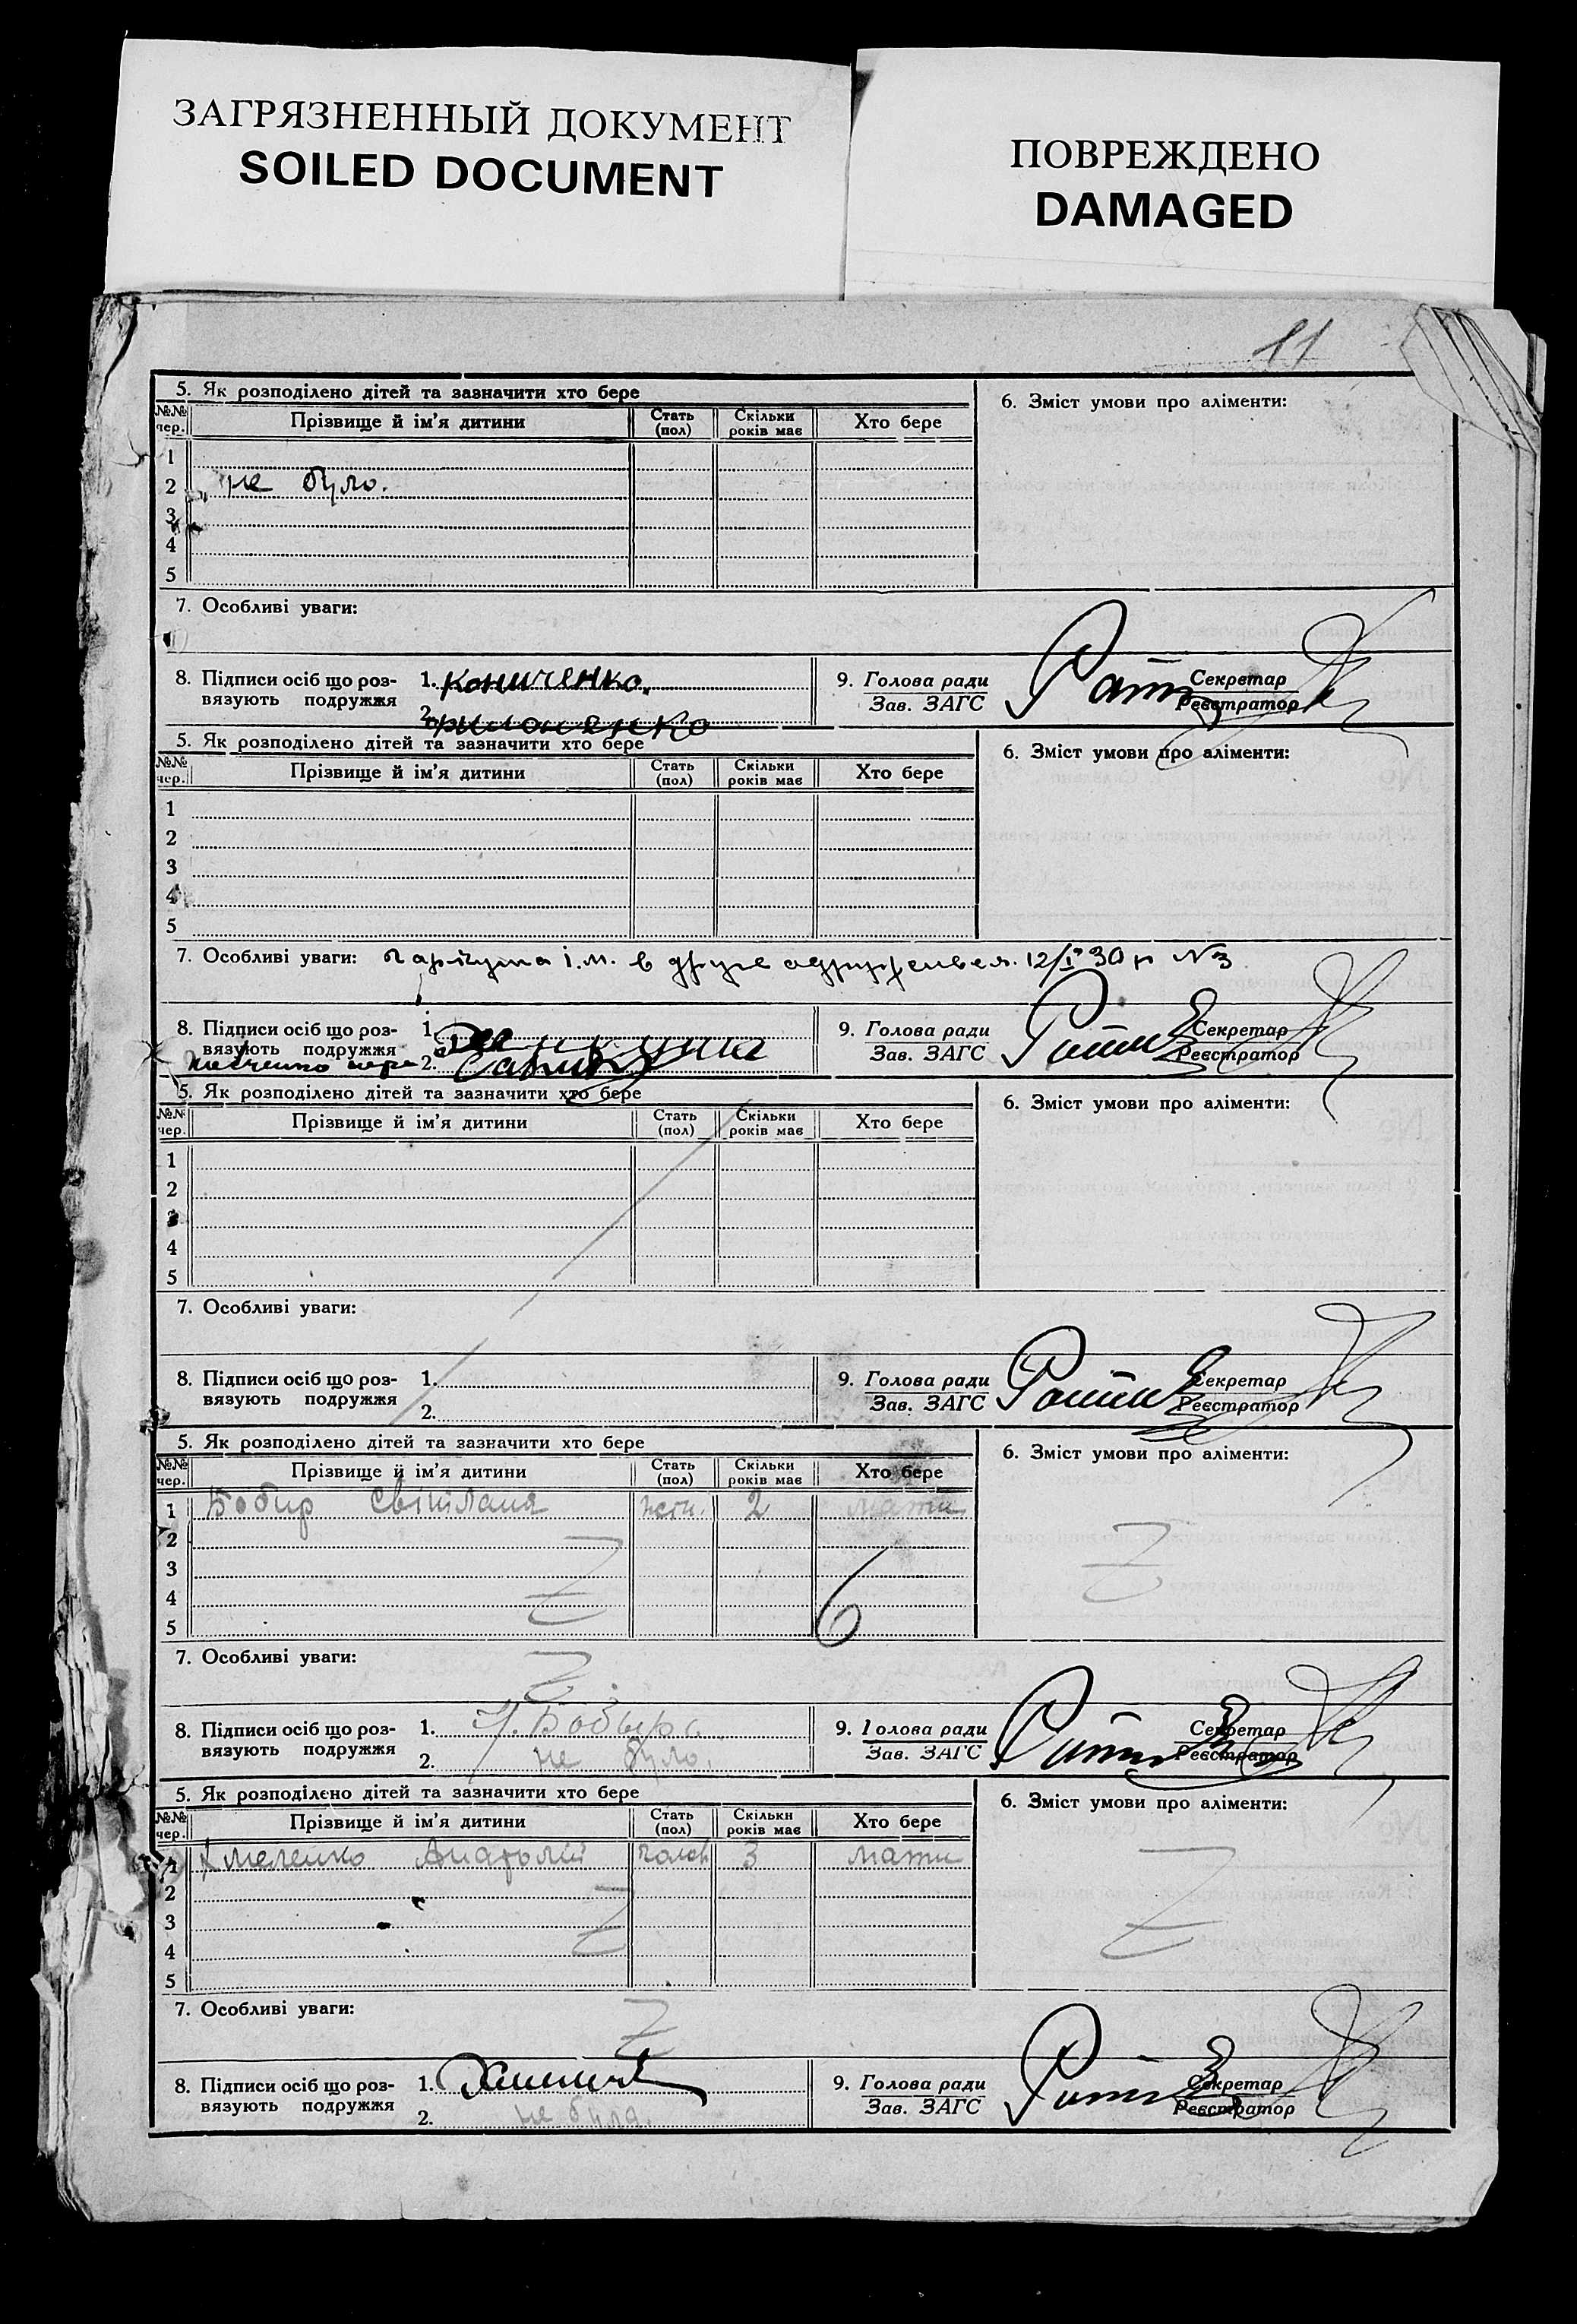 ЗАГРЯЗНЕННЫЙ ДОКУМЕНТ
SOILED DOCUMENT
ПОВРЕЖДЕНО
DAMAGED
11
5. Як розподілено дітей та зазначити хто бере
6. Зміст умови про аліменти:
№№ чер. Прізвище й ім'я дитини Стать (пол) Скільки років має Хто бере
1
2 не було.
3
4
5
7. Особливі уваги:
8. Підписи осіб що роз- 1. Кониченко.
вязують подружжя 2.
9. Голова ради Секретар
Зав. ЗАГС Реєстратор
5. Як розподілено дітей та зазначити хто бере
6. Зміст умови про аліменти:
№№ чер. Прізвище й ім'я дитини Стать (пол) Скільки років має Хто бере
1
2
3
4
5
7. Особливі уваги: і.м. в друге 12/I 30 р №3
8. Підписи осіб що роз- 1.
вязують подружжя 2.
9. Голова ради Секретар
Зав. ЗАГС Реєстратор
5. Як розподілено дітей та зазначити хто бере
6. Зміст умови про аліменти:
№№ чер. Прізвище й ім'я дитини Стать (пол) Скільки років має Хто бере
1
2
3
4
5
7. Особливі уваги:
8. Підписи осіб що роз- 1.
вязують подружжя 2.
9. Голова ради Секретар
Зав. ЗАГС Реєстратор
5. Як розподілено дітей та зазначити хто бере
6. Зміст умови про аліменти:
№№ чер. Прізвище й ім'я дитини Стать (пол) Скільки років має Хто бере
1 Бобир Світлана жін. 2 мати
2
3
4
5 6
7. Особливі уваги:
8. Підписи осіб що роз- 1.
вязують подружжя 2. не було.
9. Голова ради Секретар
Зав. ЗАГС Реєстратор
5. Як розподілено дітей та зазначити хто бере
6. Зміст умови про аліменти:
№№ чер. Прізвище й ім'я дитини Стать (пол) Скільки років має Хто бере
1 Хмеленко Анатолій чолов 3 мати
2
3
4
5
7. Особливі уваги:
8. Підписи осіб що роз- 1.
вязують подружжя 2. не була.
9. Голова ради Секретар
Зав. ЗАГС Реєстратор